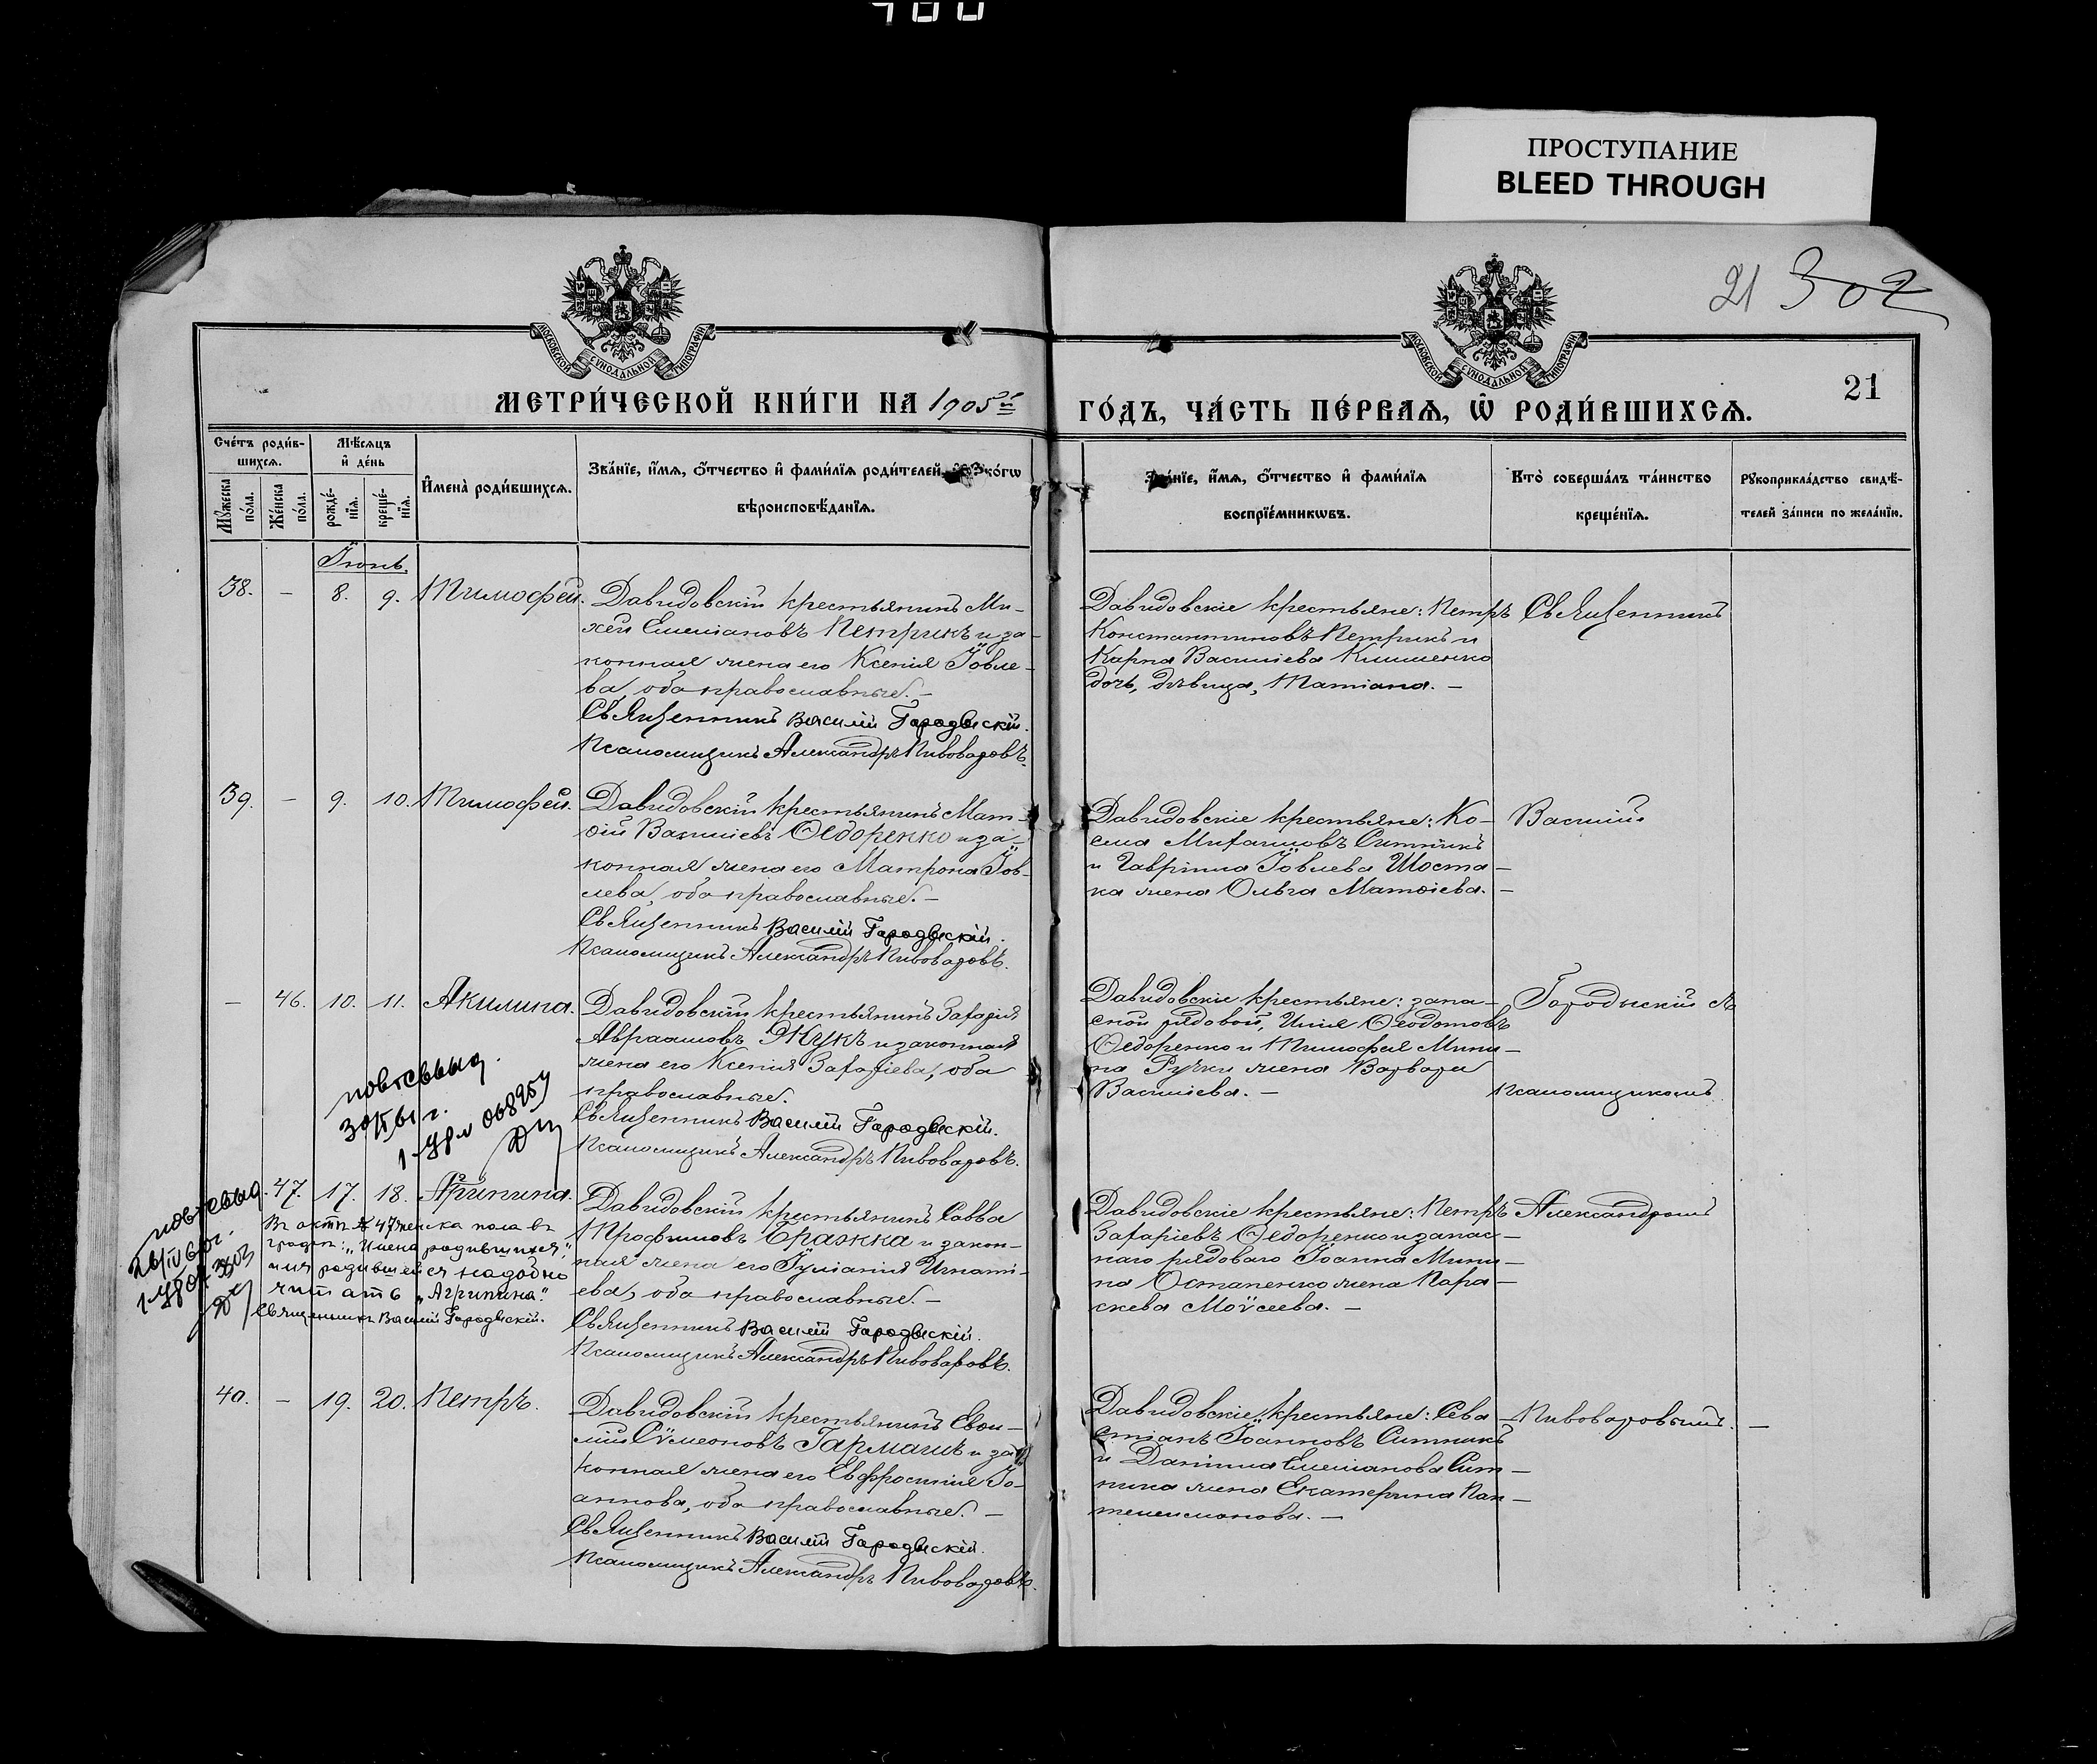 ПРОСТУПАНИЕ
BLEED THROUGH
21 302
МОСКОВСКОЙ СѴНОДАЛЬНОЙ ТИПОГРАФІИ
МОСКОВСКОЙ СѴНОДАЛЬНОЙ ТИПОГРАФІИ
МЕТРИ́ЧЕСКОЙ КНИ́ГИ НА 1905й
ГО́ДЪ, ЧА́СТЬ ПЕ́РВАѦ, Ѽ РОДИ́ВШИХСѦ.
21
Сче́тъ роди́в-
шихсѧ.
Мѣ́сѧцъ
и҆ де́нь
Мꙋ́жеска
по́ла.
Же́нска
по́ла.
рожде́-
нїѧ.
креще́-
нїѧ.
И҆мена̀ роди́вшихсѧ.
Зва́нїе, и҆́мѧ, ѻ҆́тчество и҆ фамі́лїѧ роди́телей,
вѣроисповѣ́данїѧ.
Зва́нїе, и҆́мѧ, ѻ҆́тчество и҆ фамі́лїѧ
воспрїе́мникѡвъ.
Кто̀ соверша́лъ та́инство
креще́нїѧ.
Рꙋкоприкла́дство свидѣ́-
телей за́писи по жела́нїю.
Іюнь.
38. – 8. 9. Тимофей.
Давидовскій крестьянинъ Ми-
хей Емеліановъ Петрикъ и за-
конная жена его Ксенія Іовле-
ва, оба православные. –
Священникъ Василій Городыскій.
Псаломщикъ Александръ Пивоваровъ.
Давидовскіе крестьяне: Петръ
Константиновъ Петрикъ и
Карпа Василіева Клименко
дочь, дѣвица, Татіана. –
Священникъ
39. – 9. 10. Тимофей.
Давидовскій крестьянинъ Мат-
ѳій Василіевъ Ѳедоренко и за-
конная жена его Матрона Іов-
лева, оба православные. –
Священникъ Василій Городыскій.
Псаломщикъ Александръ Пивоваровъ.
Давидовскіе крестьяне: Ко-
сма Михаиловъ Ситникъ
и Гавріила Іовлева Шоста-
ка жена Ольга Матѳіева. –
Василій
– 46. 10. 11. Акилина.
Давидовскій крестьянинъ Захарія
Авраамовъ Жукъ и законная
жена его Ксенія Захаріева, оба
православные.
Священникъ Василій Городыскій.
Псаломщикъ Александръ Пивоваровъ.
Давидовскіе крестьяне: запа-
сной рядовой, Илія Ѳеодотовъ
Ѳедоренко и Тимофея Мини-
на Ручки жена Варвара
Василіева. –
Городыскій съ
псаломщикомъ
47. 17. 18. Агрипина.
Въ актѣ № 47 женска пола въ
графѣ: „Имена родившихся",
имя родившейся надобно
читать „Агрипина".
Священникъ Василій Городыскій.
Давидовскій крестьянинъ Савва
Трофимовъ Бражка и закон-
ная жена его Іуліанія Игнаті-
ева, оба православные. –
Священникъ Василій Городыскій.
Псаломщикъ Александръ Пивоваровъ.
Давидовскіе крестьяне: Петръ
Захаріевъ Ѳедоренко и запас-
наго рядоваго Іоанна Мини-
на Остапенко жена Пара-
скева Моѵсеева. –
Александромъ
40. – 19. 20. Петръ.
Давидовскій крестьянинъ Евѳи-
мій Сѵмеоновъ Гармашъ и за-
конная жена его Евфросинія Іо-
аннова, оба православные. –
Священникъ Василій Городыскій.
Псаломщикъ Александръ Пивоваровъ.
Давидовскіе крестьяне: Сева-
стіанъ Іоанновъ Ситникъ
и Даніила Емеліанова Сит-
ника жена Екатерина Пан-
телеимонова. –
Пивоваровымъ. –